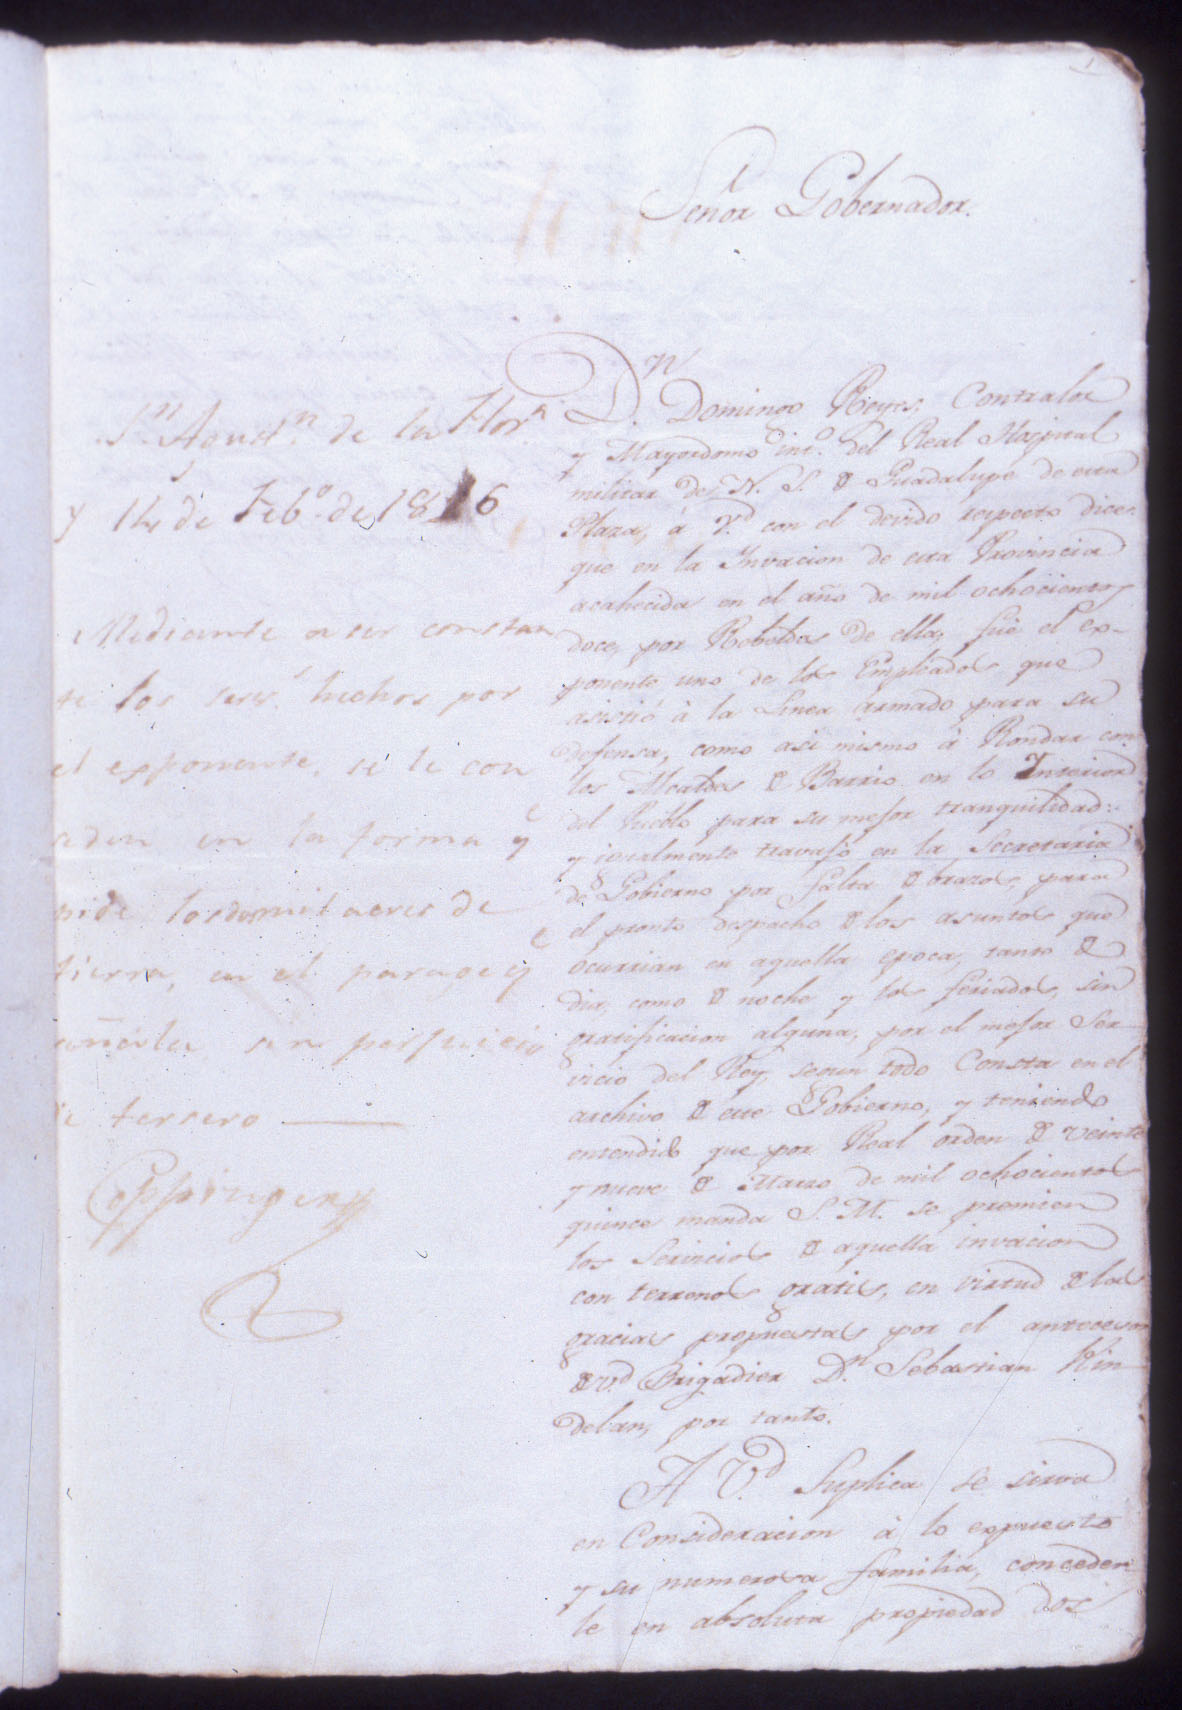 Señor Gobernador.
Dn. Domingo Reyes, Contralor
y Mayordomo intº. del Real Hospital
militar de N. S. de Guadalupe de esta
Plaza, á Vd. con el devido respecto dice:
que en la Invacion de esta Provincia
acahecida en el año de mil ochocientos
doce, por Rebeldes de ella, fué el ex-
ponente uno de los Empleados que
asistió à la Linea armado para su
defensa, como asi mismo à Rondar con
los Alcaldes de Barrio en lo Ynterior
del Pueblo para su mejor tranquilidad:
y igualmente travajó en la Secretaria
de Gobierno por falta de brazos, para
el pronto despacho de los asuntos que
ocurrian en aquella epoca, tanto de
dia, como de noche y los feriados, sin
gratificacion alguna, por el mejor Ser
vicio del Rey, segun todo Consta en el
archivo de este Gobierno, y teniendo
entendido que por Real orden de veinte
y nueve de Marzo de mil ochocientos
quince manda S. M. se premien
los Servicios de aquella invacion
con terrenos gratis, en virtud de las
gracias propuestas por el antecesor
de Vd. Brigadier Dn. Sebastian Kin
delan, por tanto.
A Vd. Suplica se sirva
en Consideracion à lo expuesto
y su numerosa familia, conceder
le en absoluta propiedad dos
Sn. Agustn. de la Flora
y 14 de Febº. de 1816
Mediante a ser constan
te los servs. hechos por
el exponente, se le con
seden en la forma qe
pide los dos mil acres de
tierra, en el parage qe
señala sin perjuicio
de tersero
Coppinger